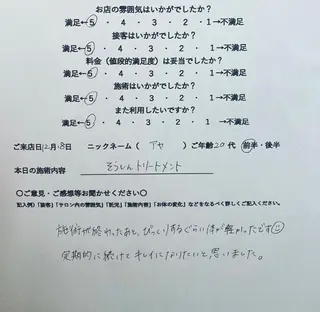 お店の雰囲気はいかがでしたか?
満足←5・4・3・2・1→不満足
接客はいかがでしたか?
満足←5・4・3・2・1→不満足
料金(値段的満足度)は妥当でしたか?
満足←5・4・3・2・1→不満足
施術はいかがでしたか?
満足←5・4・3・2・1→不満足
また利用したいですか?
満足←5・4・3・2・1→不満足
ご来店日12月18日 ニックネーム(アヤ)ご年齢20代 前半・後半
本日の施術内容 ぜんしんトリートメント
〇ご意見・ご感想等お聞かせください〇
記入例)「接客」「サロン内の雰囲気」「お体の変化」などをなるべく詳しくご記入ください。
施術が終わったあと、びっくりするぐらい体が軽かったです
定期的に続けてキレイになりたいと思いました。